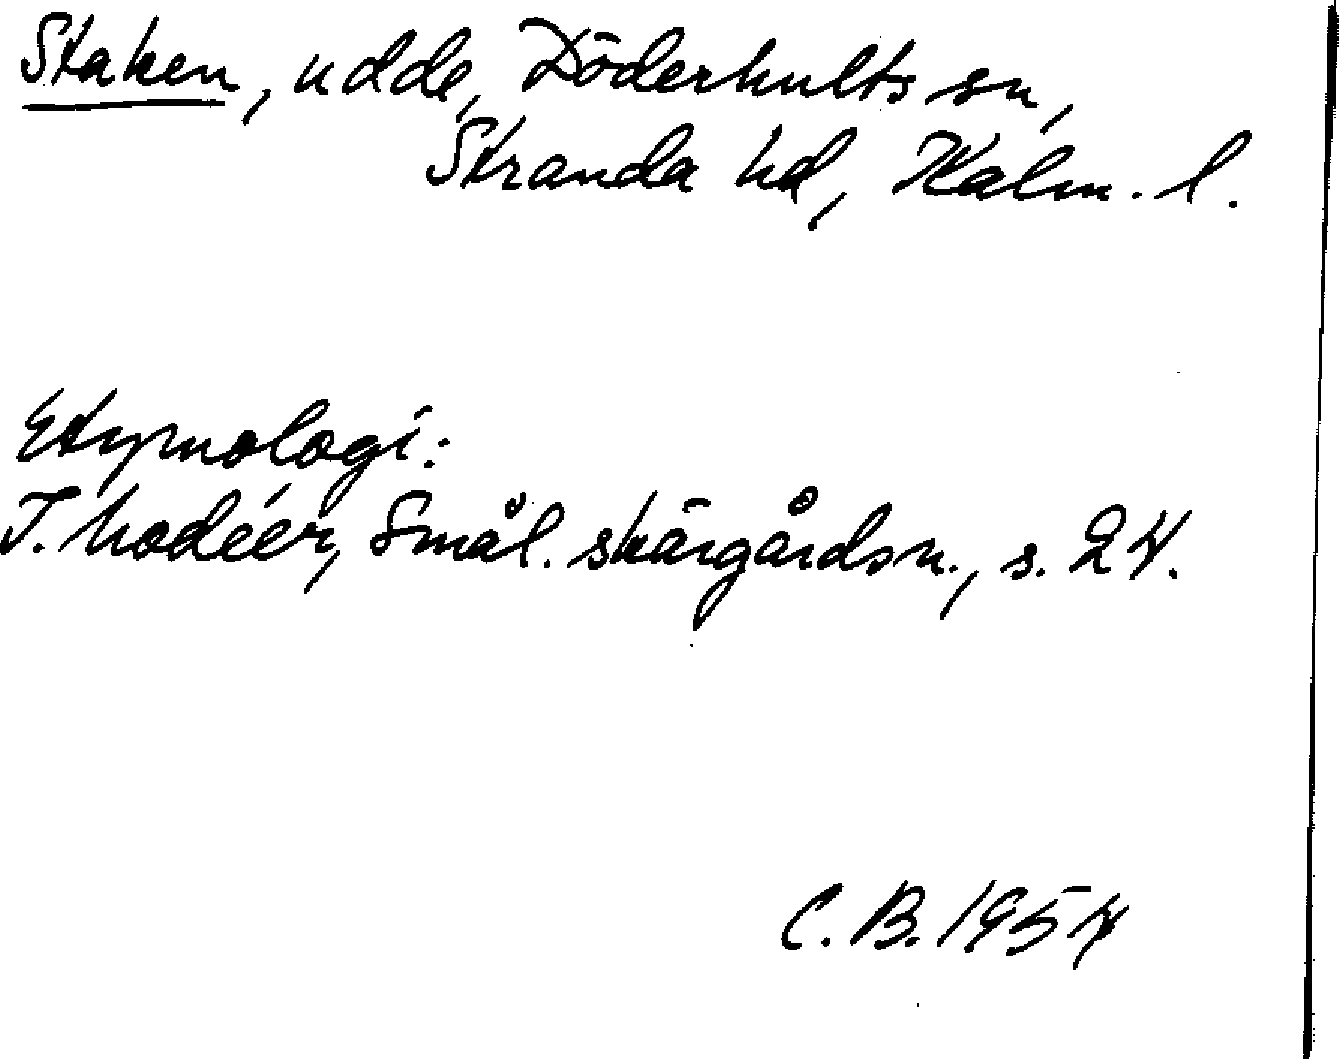 Staken, udde, Döderhults sn,
Stranda hd, Kalm. l.
Etymologi:
I. Modéer, Smål. skärgårdsn., s. 24.
C. B. 1954